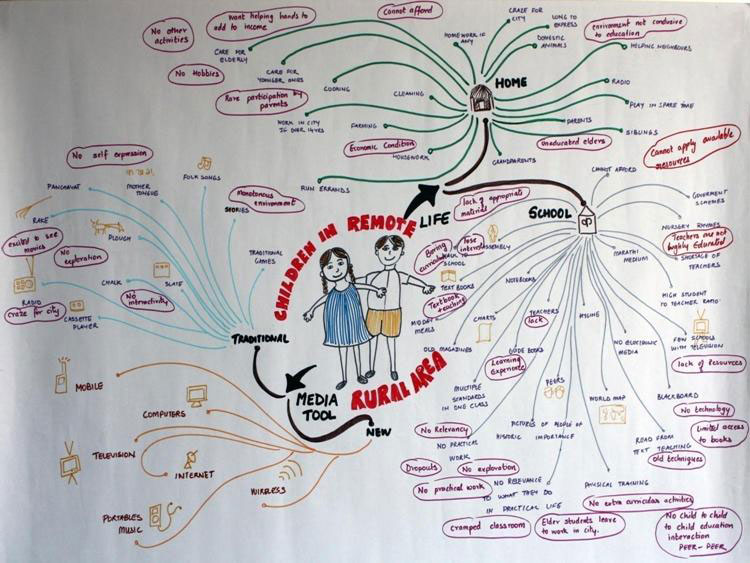 Want helping hands to
add to income
Cannot afford
No other
activities
CARE FOR
ELDERLY
CRAZE FOR
CITY
LONG TO
EXPRESS
DOMESTIC
ANIMALS
HOMEWORK IF
ANY
environment not conducive
to education
HELPING NEIGHBOURS
No Hobbies
CARE FOR
YOUNGER ONES
COOKING
CLEANING
HOME
RADIO
PLAY IN SPARE TIME
Rare participation by
parents
WORK IN CITY
IF OVER 14YRS
FARMING
PARENTS
SIBLINGS
Economic Condition
HOUSEWORK
Uneducated elders
GRANDPARENTS
Cannot apply available
resources
RUN ERRANDS
No self expression
PANCHAVAT
MOTHER
TONGUE
FOLK SONGS
Monotonous
environment
STORIES
RAKE
PLOUGH
excited to see
movies
No
exploration
TRADITIONAL
GAMES
CHALK
SLATE
No
interactivity
RADIO
Craze for city
CASSETTE
PLAYER
TRADITIONAL
CHILDREN IN REMOTE
RURAL AREA
LIFE
MEDIA
TOOL
NEW
MOBILE
COMPUTERS
TELEVISION
INTERNET
WIRELESS
PORTABLES
MUSIC
SCHOOL
CANNOT AFFORD
GOVERMENT
SCHEMES
NURSERY RHYMES
Teachers are not
highly Educated
SHORTAGE OF
TEACHERS
MARATHI
MEDIUM
HIGH STUDENT
TO TEACHER RATIO
FEW SCHOOLS
WITH TELEVISION
lack of Resources
NO ELECTRONIC
MEDIA
BLACKBOARD
No technology
Limited access
to books
READ FROM
TEXT TEACHING
Old techniques
WORLD MAP
PHYSICAL TRAINING
No extra curricular activities
No child to child
to child education
interaction
PEER-PEER
lack of appropriate
material
lose
interest
ASSEMBLY
Boring
SCHOOL
TEXT BOOKS
Textbook
teaching
MIDDAY
MEALS
NOTEBOOKS
CHARTS
OLD MAGAZINES
TEACHERS
lack
GUIDE BOOKS
Learning
Experience
PEERS
MULTIPLE
STANDARDS
IN ONE CLASS
PICTURES OF PEOPLE OF
HISTORIC IMPORTANCE
No Relevancy
NO PRACTICAL
WORK
Dropouts
No exploration
No practical work
NO RELEVANCE
TO WHAT THEY DO
IN PRACTICAL LIFE
Cramped classroom
Elder students leave
to work in city.